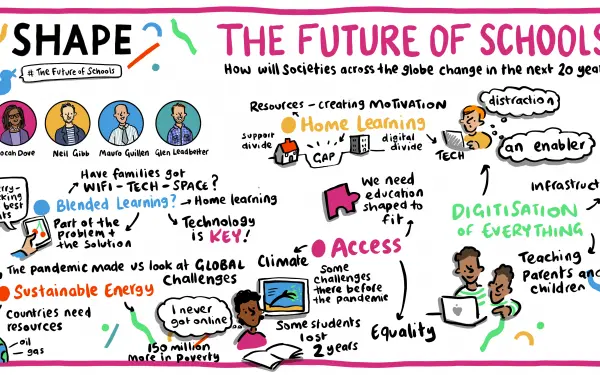 SHAPE
# The Future of Schools
THE FUTURE OF SCHOOLS
How will societies across the globe change in the next 20 year
Neil Gibb
Mauro Guillen
Glen Leadbetter
Resources - creating MOTIVATION
Home Learning
support
divide
GAP
digital
divide
TECH
distraction
an enabler
Have families got
WIFI - TECH - SPACE?
Blended Learning?
Home learning
Part of the
problem +
the solution
Technology
is KEY!
We need
education
shaped to
fit
Infrastruct
DIGITISATION
OF EVERYTHING
Teaching
Parents and
children
Access
Some
challenges
there before
the pandemic
Equality
The pandemic made us look at GLOBAL
Challenges
Climate
Sustainable Energy
Countries need
resources
oil
gas
I never
got online!
150 million
more in poverty
Some students
lost
2 years